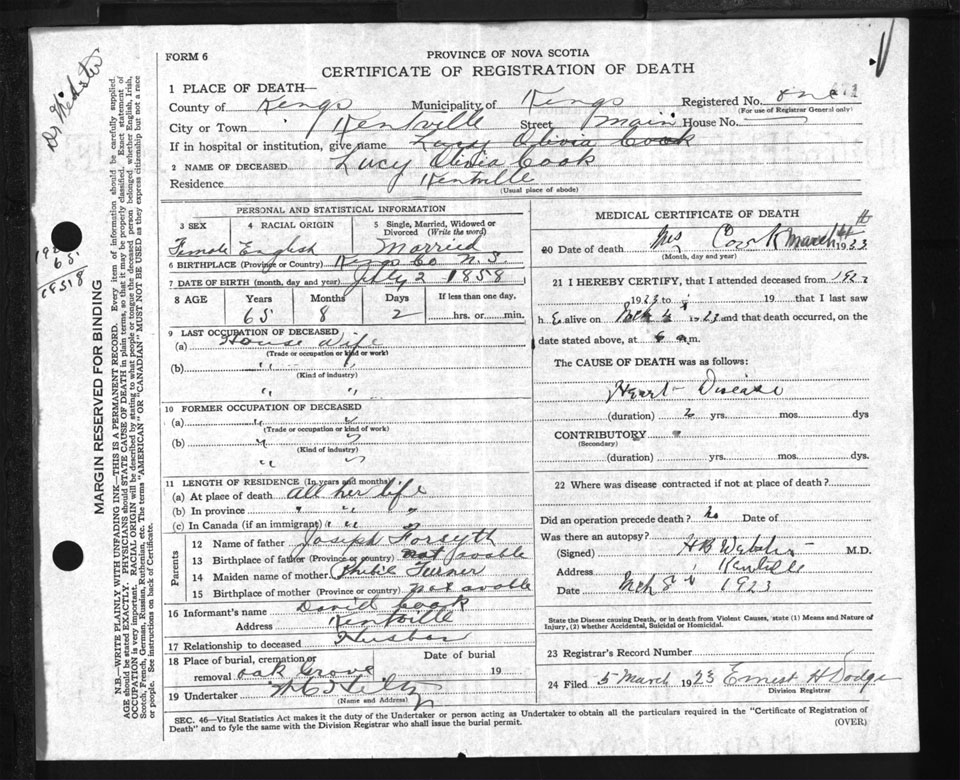 Dr Webster
FORM 6
PROVINCE OF NOVA SCOTIA
CERTIFICATE OF REGISTRATION OF DEATH
1 PLACE OF DEATH—
County of Kings Municipality of Kings Registered No.
(For use of Registrar General only)
City or Town Kentville Street Main House No.
If in hospital or institution, give name Lucy Olivia Cook
2 NAME OF DECEASED Lucy Olivia Cook
Residence Kentville
(Usual place of abode)
MARGIN RESERVED FOR BINDING
N.B.—WRITE PLAINLY, WITH UNFADING INK—THIS IS A PERMANENT RECORD. Every item of information should be carefully supplied.
AGE should be stated EXACTLY. PHYSICIANS should STATE CAUSE OF DEATH in plain terms, so that it may be properly classified. Exact statement of
OCCUPATION is very important. RACIAL ORIGIN will be described by stating to what people or tongue the deceased person belonged whether English, Irish,
Scotch, French, German, Russian, Ruthenian, etc. The terms "AMERICAN" or "CANADIAN" MUST NOT BE USED as they express citizenship but not a race
or people. See instructions on back of Certificate.
PERSONAL AND STATISTICAL INFORMATION
3 SEX 4 RACIAL ORIGIN 5 Single, Married, Widowed or
Divorced (Write the word)
Female English Married
6 BIRTHPLACE (Province or Country) Kings Co N.S.
7 DATE OF BIRTH (month, day and year) July 2 1858
8 AGE Years Months Days If less than one day,
65 8 2 hrs. or min.
9 LAST OCCUPATION OF DECEASED
(a) House Wife
(Trade or occupation or kind or work)
(b) " "
(Kind of industry)
" "
10 FORMER OCCUPATION OF DECEASED
(a) "
(Trade or occupation or kind of work)
(b) "
(Kind of industry)
"
11 LENGTH OF RESIDENCE (In years and months)
(a) At place of death all her life
(b) In province " " "
(c) In Canada (if an immigrant) " " "
Parents
12 Name of father Joseph Forsyth
13 Birthplace of father (Province or country) not avable
14 Maiden name of mother Turner
15 Birthplace of mother (Province or country) not avable
16 Informant's name David Cook
Address Kentville
17 Relationship to deceased Husban
18 Place of burial, cremation or Date of burial
removal Oak Grove 19
19 Undertaker
(Name and Address)
MEDICAL CERTIFICATE OF DEATH
20 Date of death Mrs Cook March 1923
(Month, day and year)
21 I HEREBY CERTIFY, that I attended deceased from 192
1923 to 19 that I last saw
h e alive on Mch 4 1923 and that death occurred, on
date stated above, at 6 a.m.
The CAUSE OF DEATH was as follows:
Heart Disease
(duration) 2 yrs. mos. dys
CONTRIBUTORY
(Secondary)
(duration) yrs. mos. dys.
22 Where was disease contracted if not at place of death?
Did an operation precede death? no Date of
Was there an autopsy?
(Signed) H B Webster M.D.
Address Kentville
Date Mch 8 1923
State the Disease causing Death, or in death from Violent Causes, state (1) Means and Nature of
Injury, (2) whether Accidental, Suicidal or Homicidal.
23 Registrar's Record Number
24 Filed 5 March 1923 Ernest H Dodge
Division Registrar
SEC. 46—Vital Statistics Act makes it the duty of the Undertaker or person acting as Undertaker to obtain all the particulars required in the "Certificate of Registration of
Death" and to fyle the same with the Division Registrar who shall issue the burial permit. (OVER)